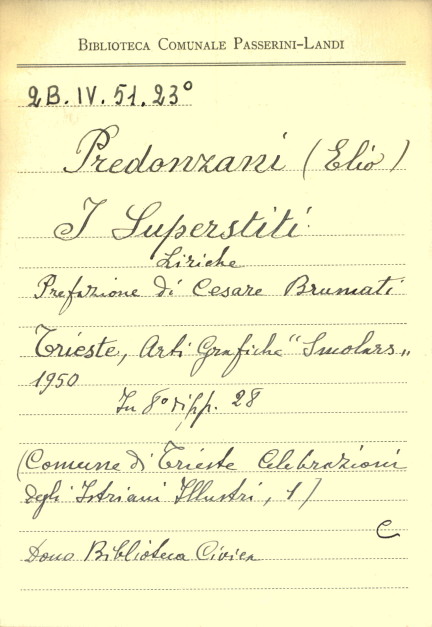 BIBLIOTECA COMUNALE PASSERINI-LANDI
2B. IV. 51. 23°
Predonzani (Elio)
I Superstiti
Liriche
Prefazione di Cesare Brumati
Trieste, Arti Grafiche "Smolars"
1950
In 8° di pp. 28
(Comune di Trieste Celebrazioni
degli Istriani Illustri, 1)
C
Dono Biblioteca Civica